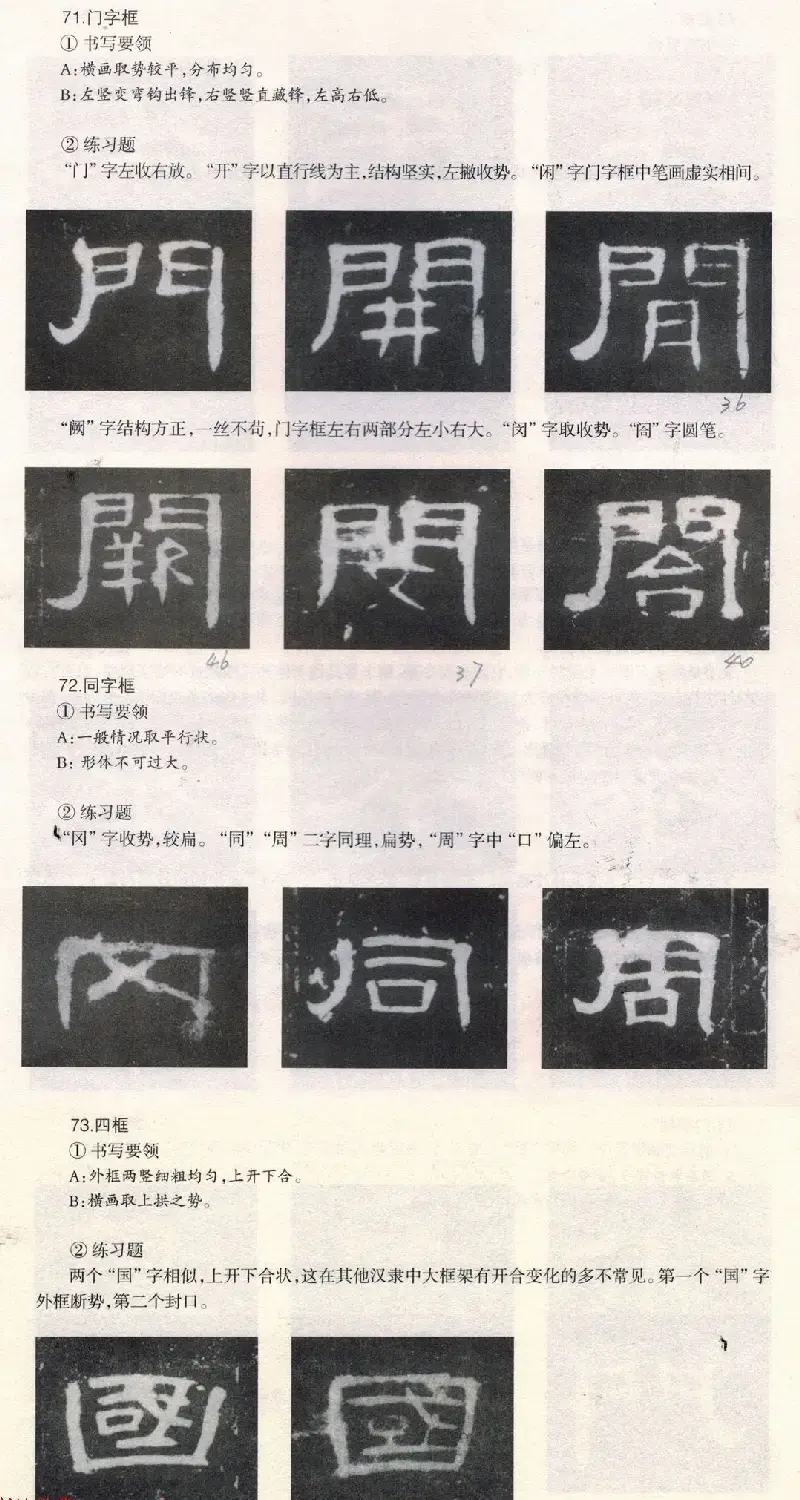 71.门字框
① 书写要领
A:横画取势较平,分布均匀。
B:左竖变弯钩出锋,右竖竖直藏锋,左高右低。
② 练习题
“门”字左收右放。“开”字以直行线为主,结构坚实,左撇收势。“闲”字门字框中笔画虚实相间。
門 開 間
36
“阙”字结构方正,一丝不苟,门字框左右两部分左小右大。“闵”字取收势。“阁”字圆笔。
闕 閔 閤
46 37 40
72.同字框
① 书写要领
A:一般情况取平行状。
B: 形体不可过大。
② 练习题
“冈”字收势,较扁。“同”“周”二字同理,扁势,“周”字中“口”偏左。
同 周
73.四框
① 书写要领
A:外框两竖细粗均匀,上开下合。
B:横画取上拱之势。
② 练习题
两个“国”字相似,上开下合状,这在其他汉隶中大框架有开合变化的多不常见。第一个“国”字
外框断势,第二个封口。
國 國